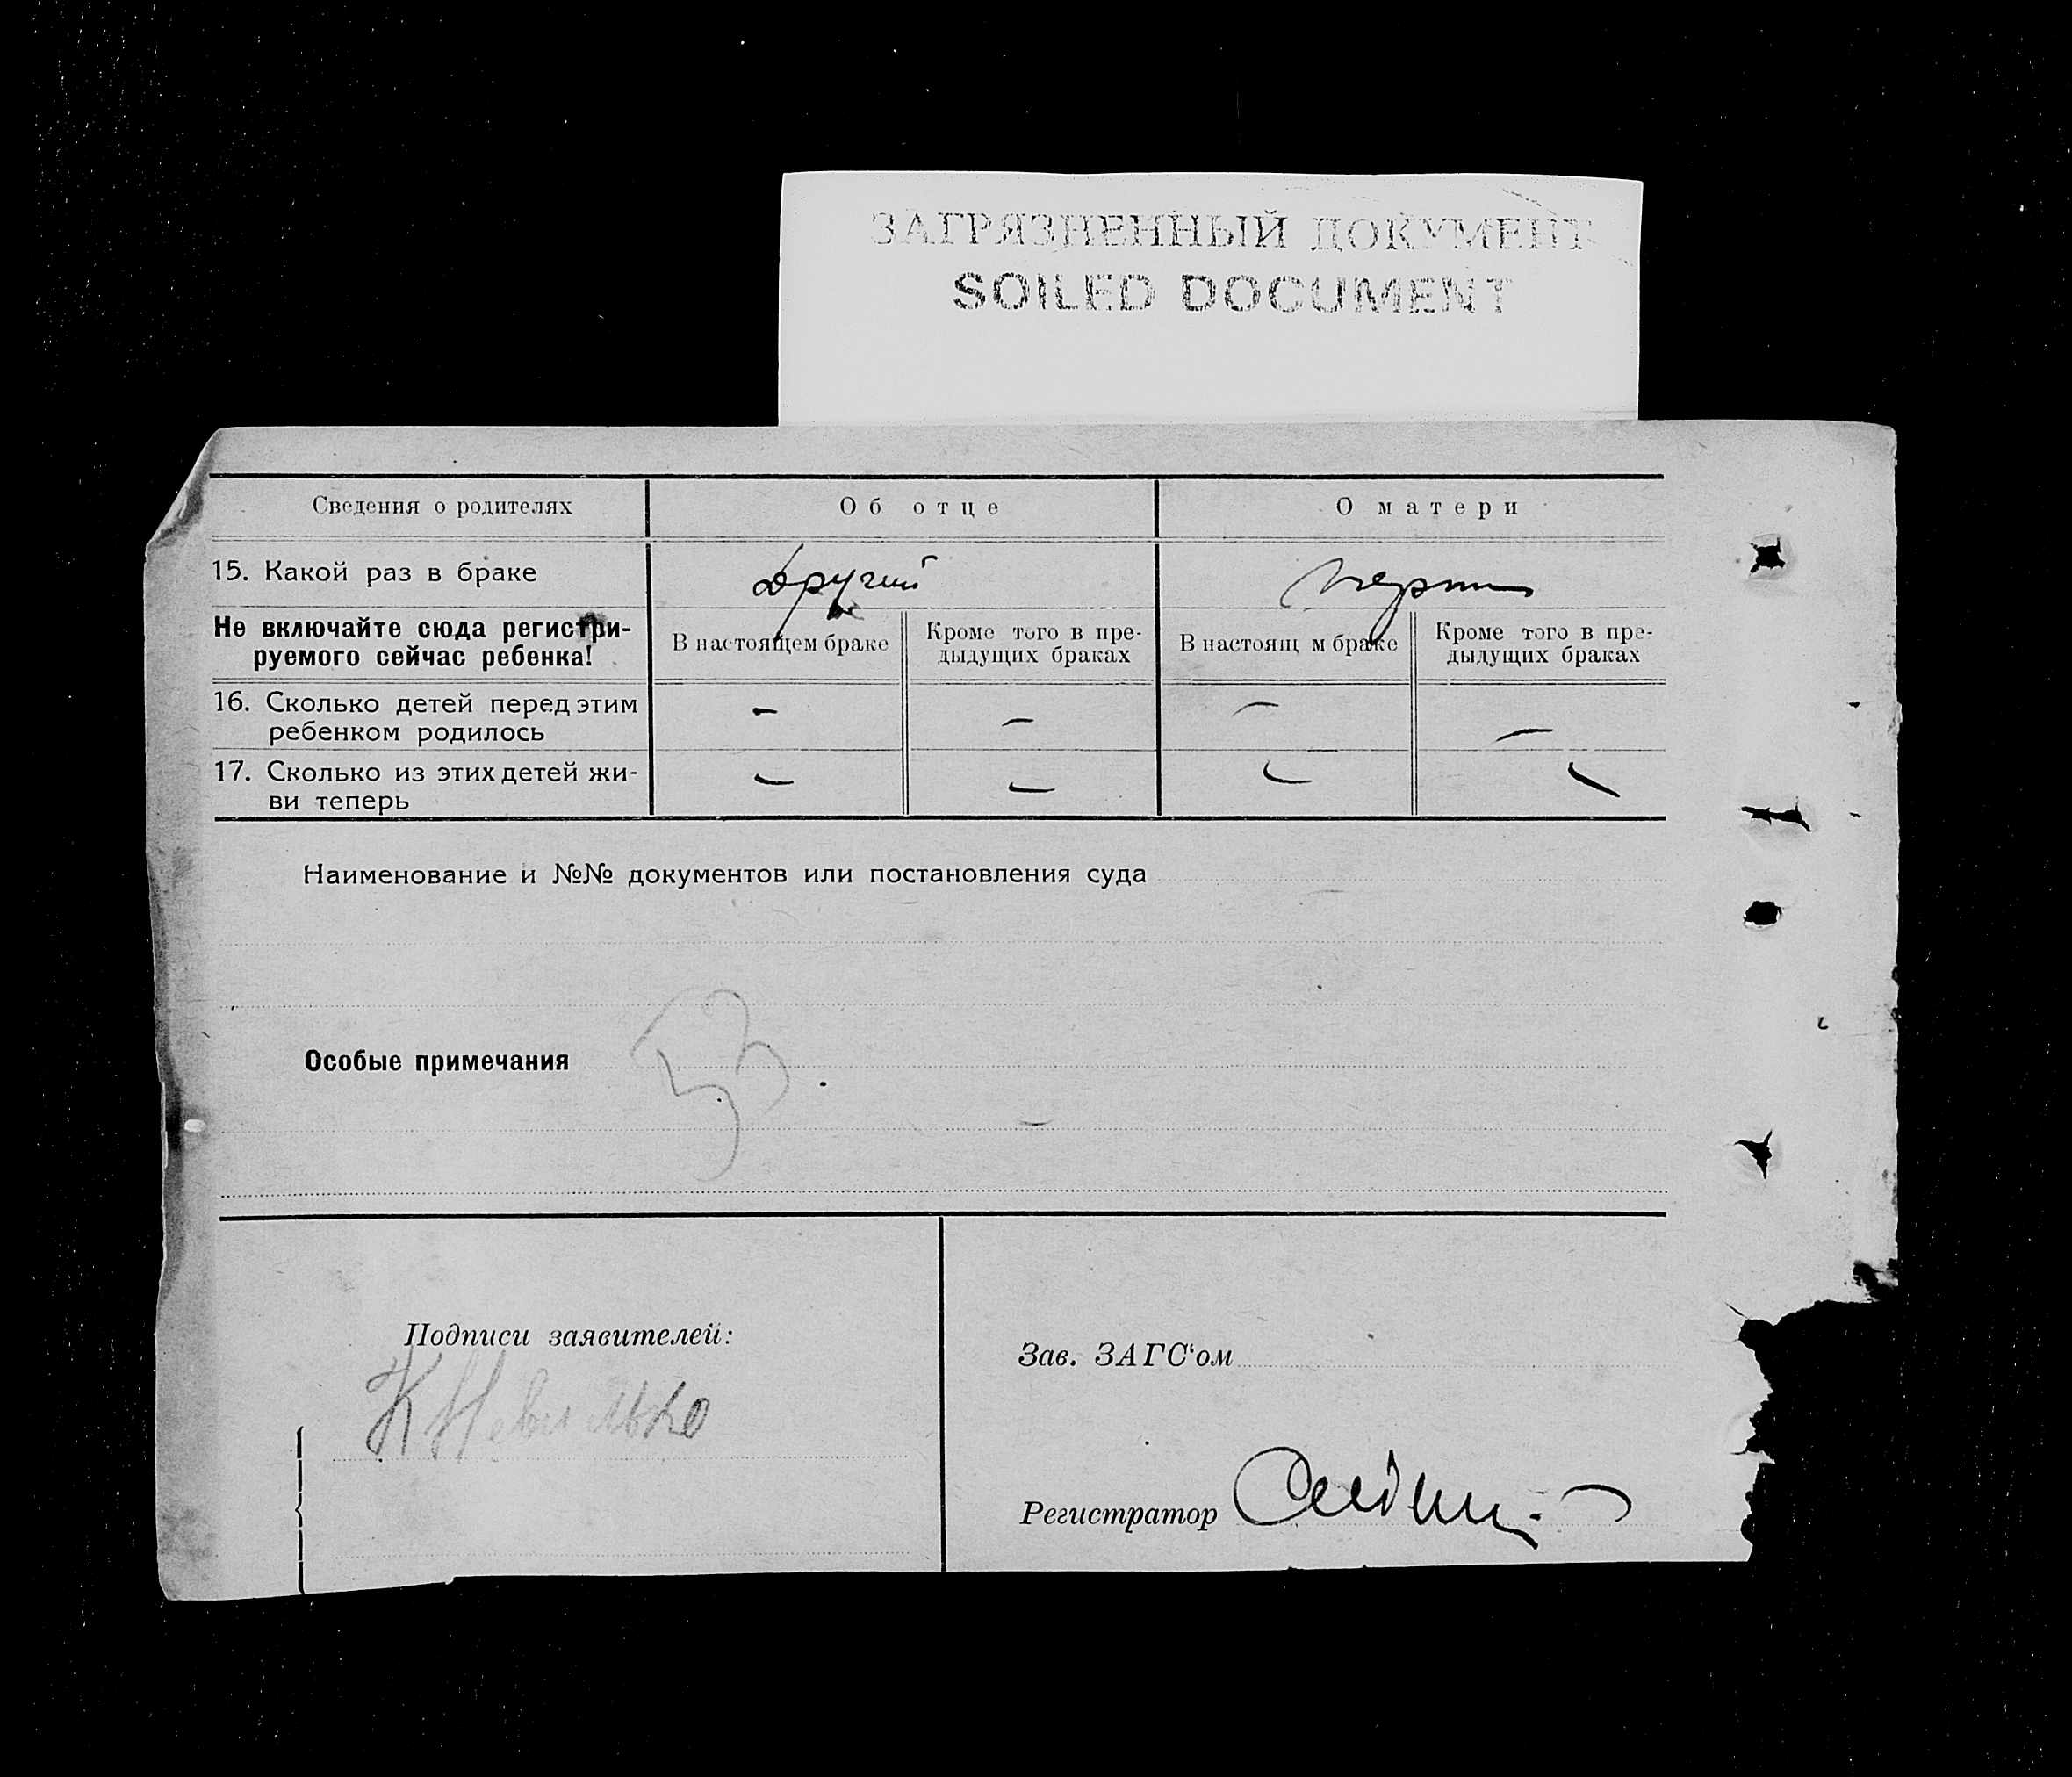 ЗАГРЯЗНЕННЫЙ ДОКУМЕНТ
SOILED DOCUMENT
Сведения о родителях Об отце О матери
15. Какой раз в браке Другий
Не включайте сюда регистри-
руемого сейчас ребенка!
В настоящем браке Кроме того в пре-
дыдущих браках
В настоящ м браке Кроме того в пре-
дыдущих браках
16. Сколько детей перед этим
ребенком родилось - - - -
17. Сколько из этих детей жи-
ви теперь - - - -
Наименование и №№ документов или постановления суда
Особые примечания
Подписи заявителей:
Зав. ЗАГС‘ом
Регистратор